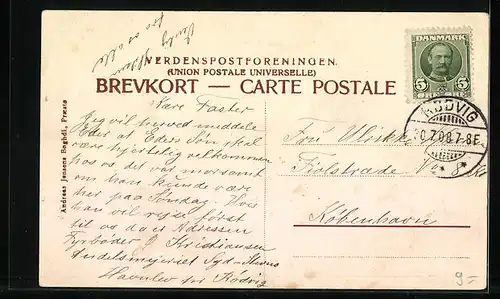 VERDENSPOSTFORENINGEN.
(UNION POSTALE UNIVERSELLE)
BREVKORT — CARTE POSTALE
DANMARK
5 5
ØRE
RØDVIG
0.7.08.7-8E
Andreas Jensens Boghdl., Præstø
Kære Faster
Jeg vil herved meddele
Eder at Eders Søn skal
være hjertelig velkommen
hos os det var morsomt
om han kunde være
her paa Søndag. Hvis
han vil rejse först
til os da er Adressen
Fyrbøder J Kristiansen
Andelsmejeriet Syd-Stevns
Havnlev pr Rödvig
Fru Ulrikke
Fiolstræde
København
9.-